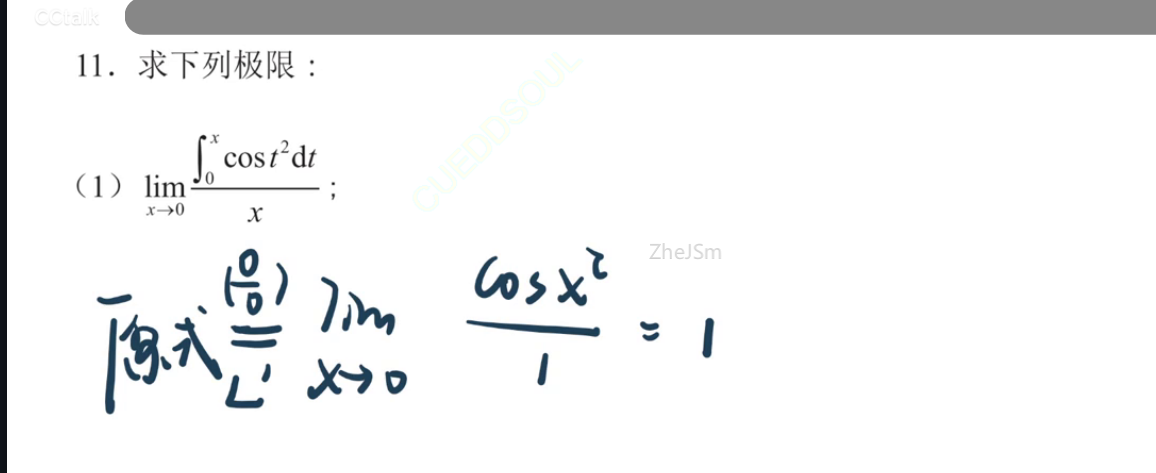 CCtalk
11. 求下列极限：
(1) lim_{x→0} \frac{∫_0^x cos t² dt}{x} ;
CUEDDSOUL
ZheJSm
原式 \frac{(0/0)}{L'}= lim_{x→0} \frac{cos x²}{1} = 1